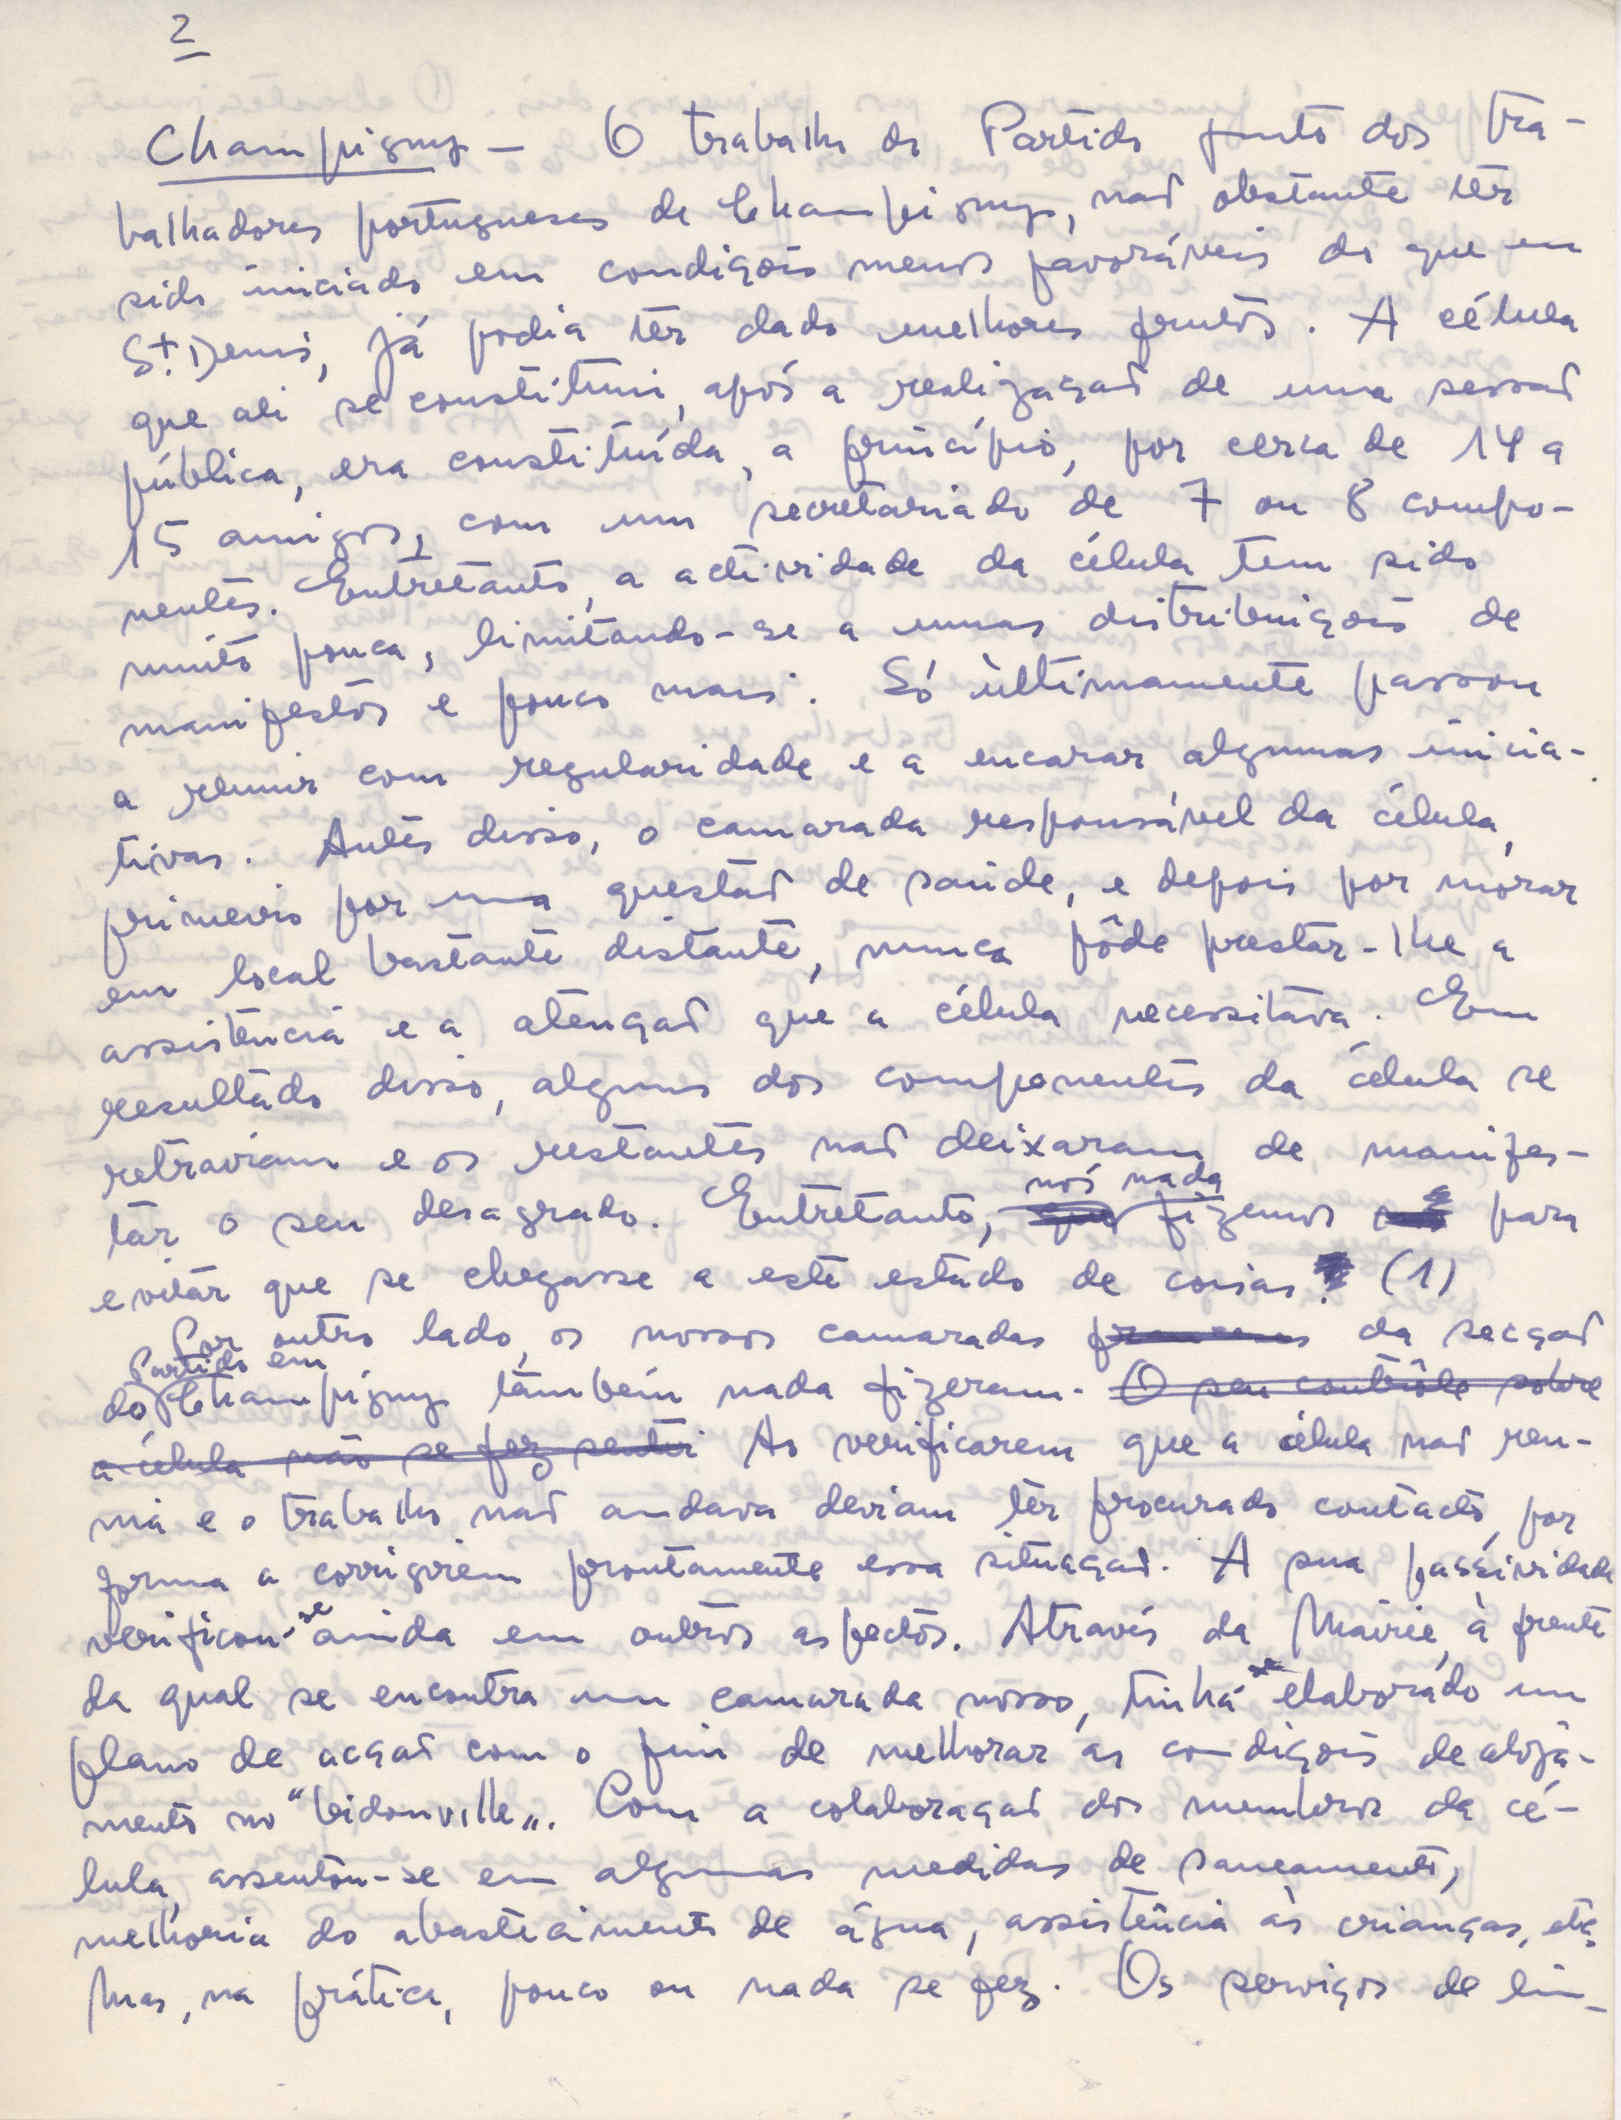 2
Champigny — O trabalho do Partido junto dos tra-
balhadores portugueses de Champigny, não obstante ter
sido iniciado em condições menos favoráveis do que em
St. Denis, já podia ter dado melhores frutos. A célula
que ali se constituiu, após a realização de uma sessão
pública, era constituída, a princípio, por cerca de 14 a
15 amigos, com um secretariado de 7 ou 8 compo-
nentes. Entretanto, a actividade da célula tem sido
muito pouca, limitando-se a umas distribuições de
manifestos e pouco mais. Só ùltimamente passou
a reunir com regularidade e a encarar algumas inicia-
tivas. Antes disso, o camarada responsável da célula,
primeiro por uma questão de saúde, e depois por morar
em local bastante distante, nunca pôde prestar-lhe a
assistência e a atenção que a célula necessitava. Em
resultado disso, alguns dos componentes da célula se
retraviam e os restantes não deixaram de manifes-
tar o seu desagrado. Entretanto, nós nada fizemos para
evitar que se chegasse a este estado de coisas. (1)
Por outro lado, os nossos camaradas franceses da secção
do Partido em Champigny também nada fizeram. O seu contrôle sobre
a célula não se fez sentir. Ao verificarem que a célula não reu-
nia e o trabalho não andava deviam ter procurado contacto, por
forma a corrigirem prontamente essa situação. A sua passividade
verificou-se ainda em outros aspectos. Através da Mairie, à frente
da qual se encontra um camarada nosso, tinha-se elaborado um
plano de acção com o fim de melhorar as condições de aloja-
mento no "bidonville". Com a colaboração dos membros da cé-
lula, assentou-se em algumas medidas de saneamento,
melhoria do abastecimento de água, assistência às crianças, etc.
Mas, na prática, pouco ou nada se fez. Os serviços de lim-